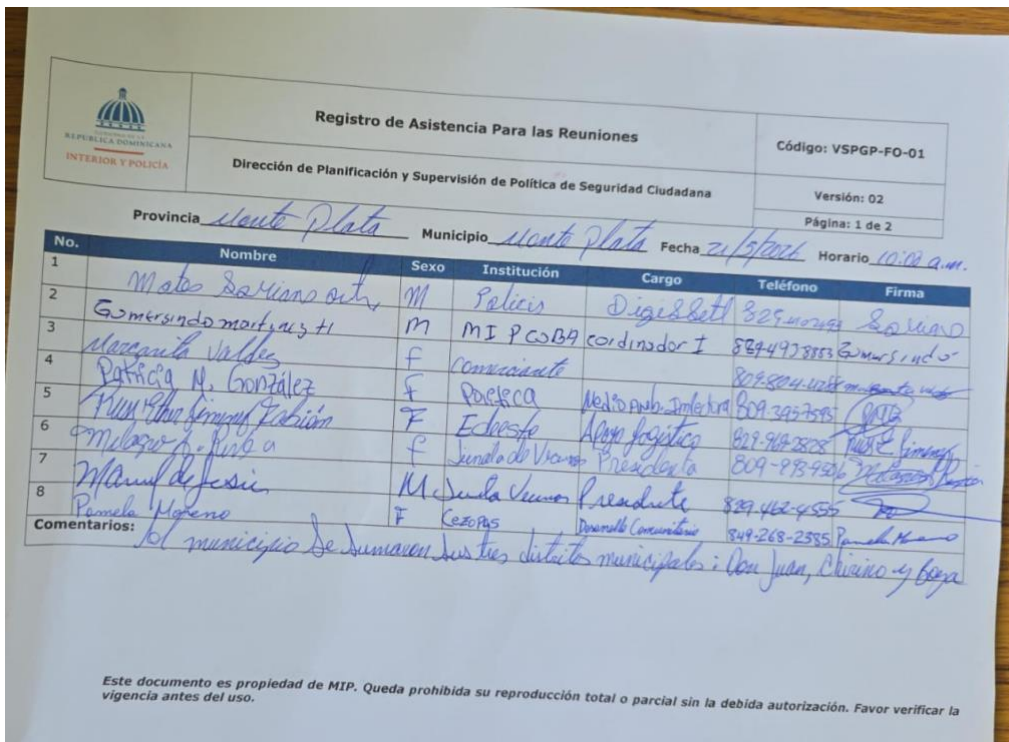 GOBIERNO DE LA
REPÚBLICA DOMINICANA
INTERIOR Y POLICÍA
Registro de Asistencia Para las Reuniones
Dirección de Planificación y Supervisión de Política de Seguridad Ciudadana
Código: VSPGP-FO-01
Versión: 02
Página: 1 de 2
Provincia Monte Plata Municipio Monte Plata Fecha 21/5/2026 Horario 10:00 a.m.
No. Nombre Sexo Institución Cargo Teléfono Firma
1 Mateo Soriano M Policia Soriano
2 Gumersindo martinez H M MIPCOBA coordinador I Gumersindo
3 Margarita Valdez F comerciante
4 Patricia M. González F 809-3957595
5 Fabián F Apoyo logístico 829-969-2808
6 Milagro F Junta de Vecinos Presidenta
7 Manuel de Jesús M Junta Vecinos Presidente 829-462-4555
8 Pamela Moreno F Cezopas Desarrollo Comunitario 849-268-2385 Pamela Moreno
Comentarios: municipio se sumaron sus tres distritos municipales: Don Juan, Chirino y Boya
Este documento es propiedad de MIP. Queda prohibida su reproducción total o parcial sin la debida autorización. Favor verificar la
vigencia antes del uso.